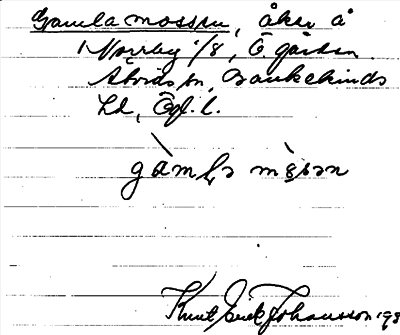 Gamla mossen, åker å
Norrby 1/8, Ö. gården
Åtvids sn, Bankekinds
hd, Ögl. l.
gàmḷə mò̤sən
Knut Erik Johansson 193